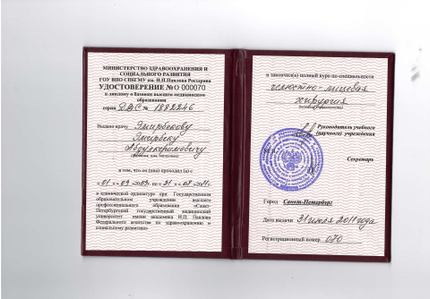 МИНИСТЕРСТВО ЗДРАВООХРАНЕНИЯ И
СОЦИАЛЬНОГО РАЗВИТИЯ
ГОУ ВПО СПбГМУ им. И.П.Павлова Росздрава
УДОСТОВЕРЕНИЕ № О 000070
к диплому о базовом высшем медицинском
образовании
серия № 1882246
Выдано врачу Эмирбекову
Эмирбеку
Абдулкеримовичу
(фамилия, имя, отчество)
в том, что он (она) проходил (а) с
«01» 09 по «31» 08
в клинической ординатуре при Государственном
образовательном учреждении высшего
профессионального образования «Санкт-
Петербургский государственный медицинский
университет имени академика И.П. Павлова
Федерального агентства по здравоохранению и
социальному развитию»
и закончил(а) полный курс по специальности
челюстно-лицевая
хирургия
Руководитель учебного
(научного) учреждения
Секретарь
Город Санкт-Петербург
Дата выдачи 31 июля 2011 года
Регистрационный номер 070